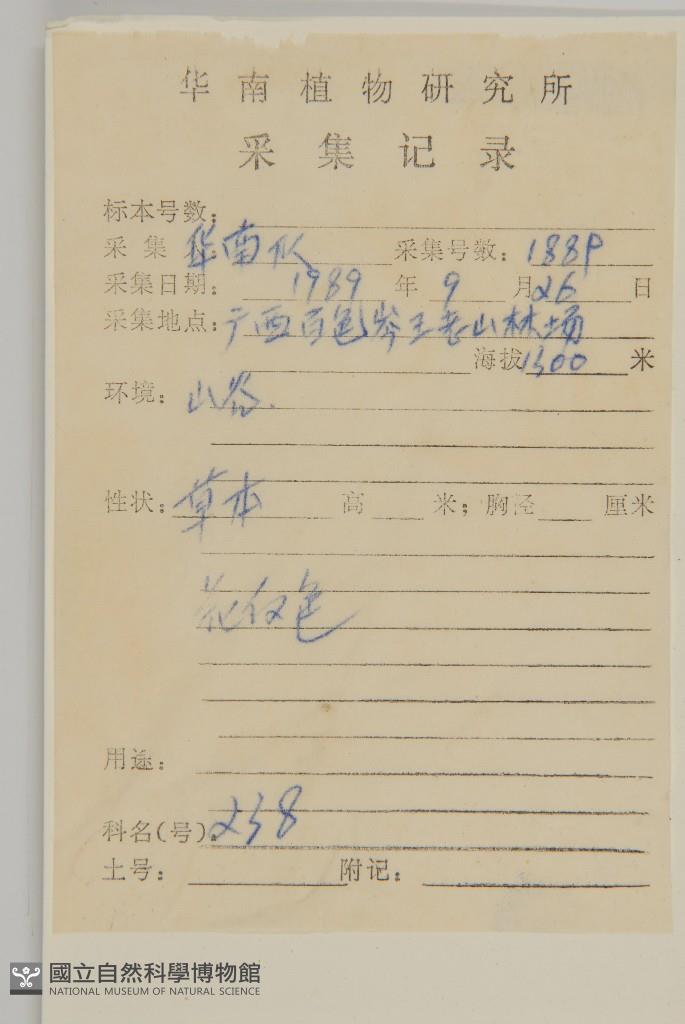 华南植物研究所
采集记录
标本号数:
采集 华南队 采集号数: 1889
采集日期: 1989 年 9 月 26 日
采集地点: 广西百色岑王老山林场
海拔 1300 米
环境: 山谷.
性状: 草本 高 米; 胸泾 厘米
花红色
用途:
科名(号): 238
土号: 附记:
國立自然科學博物館
NATIONAL MUSEUM OF NATURAL SCIENCE